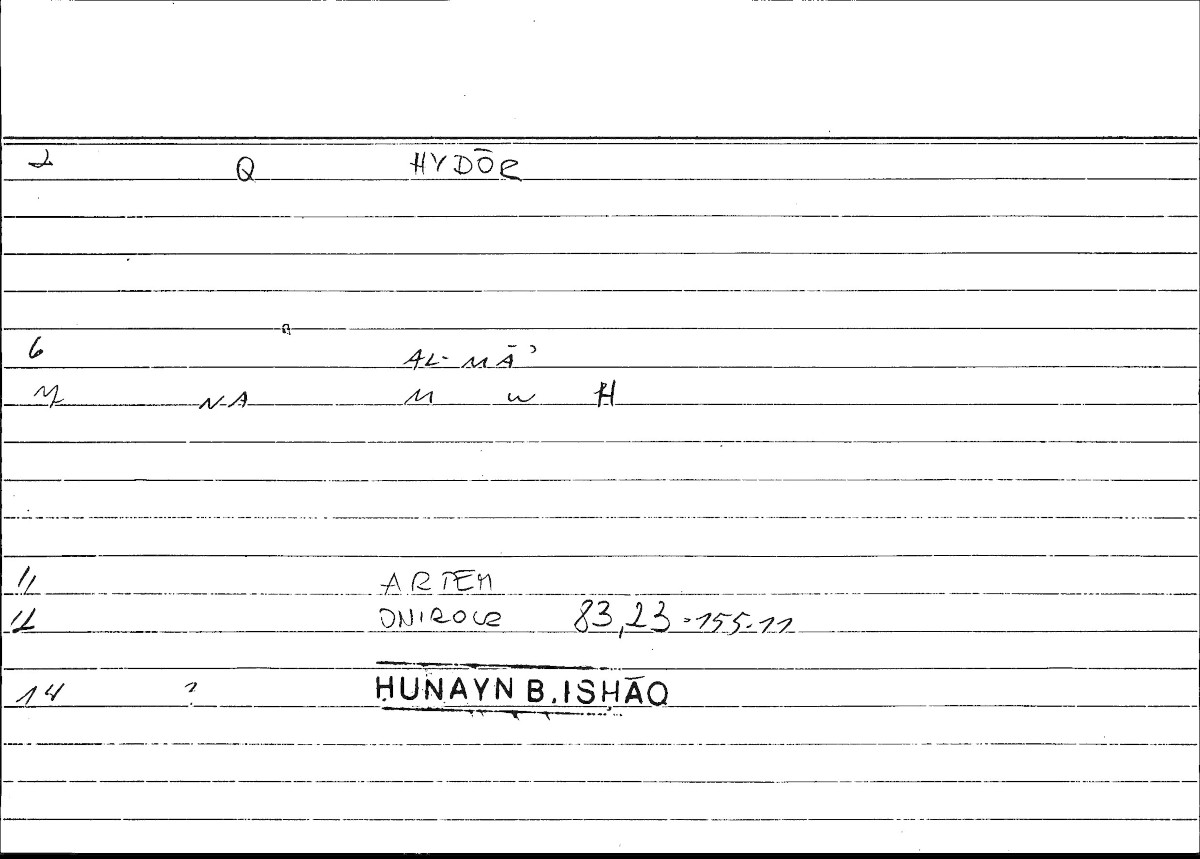 2 Q HYDŌR
6 AL-MĀʾ
7 NA M W H
11 ARTEM
12 ONIROCR 83,23-155-11
14 ? ḤUNAYN B. ISḤĀQ